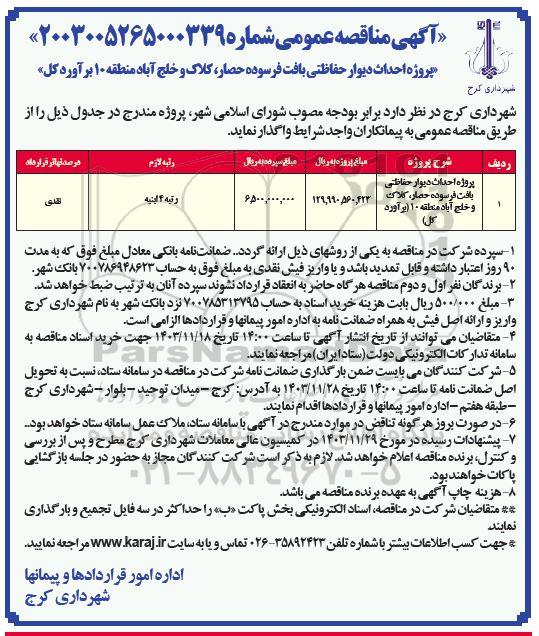 «آگهی مناقصه عمومی شماره ۲۰۰۳۰۰۵۲۶۵۰۰۰۳۳۹»
«پروژه احداث دیوار حفاظتی بافت فرسوده حصار، کلاک و خلج آباد منطقه ۱۰ برآورد کل»
شهرداری کرج
شهرداری کرج در نظر دارد برابر بودجه مصوب شورای اسلامی شهر، پروژه مندرج در جدول ذیل را از
طریق مناقصه عمومی به پیمانکاران واجد شرایط واگذار نماید.
ردیف شرح پروژه مبلغ پروژه به ریال مبلغ سپرده به ریال رتبه لازم درصد تهاتر قرارداد
۱ پروژه احداث دیوار حفاظتی بافت فرسوده حصار، کلاک و خلج آباد منطقه ۱۰ (برآورد کل) ۱۲۹,۹۹۰,۵۶۰,۴۲۳ ۶,۵۰۰,۰۰۰,۰۰۰ رتبه ۴ ابنیه نقدی
۱-سپرده شرکت در مناقصه به یکی از روشهای ذیل ارائه گردد.. ضمانت‌نامه بانکی معادل مبلغ فوق که به مدت
۹۰ روز اعتبار داشته و قابل تمدید باشد و یا واریز فیش نقدی به مبلغ فوق به حساب ۷۰۰۷۸۶۹۴۸۶۲۳ بانک شهر.
۲- برندگان نفر اول و دوم مناقصه هر گاه حاضر به انعقاد قرارداد نشوند سپرده آنان به ترتیب ضبط خواهد شد.
۳- مبلغ ۵۰۰/۰۰۰ ریال بابت هزینه خرید اسناد به حساب ۷۰۰۷۸۵۳۱۳۷۹۵ نزد بانک شهر به نام شهرداری کرج
واریز و ارائه اصل فیش به همراه ضمانت نامه به اداره امور پیمانها و قراردادها الزامی است.
۴- متقاضیان می توانند از تاریخ انتشار آگهی تا ساعت ۱۴:۰۰ تاریخ ۱۴۰۳/۱۱/۱۸ جهت خرید اسناد مناقصه به
سامانه تدارکات الکترونیکی دولت (ستاد ایران) مراجعه نمایند.
۵-شرکت کنندگان می بایست ضمن بارگذاری ضمانت نامه شرکت در مناقصه در سامانه ستاد، نسبت به تحویل
اصل ضمانت نامه تا ساعت ۱۴:۰۰ تاریخ ۱۴۰۳/۱۱/۲۸ به آدرس: کرج - میدان توحید - بلوار - شهرداری کرج
-طبقه هفتم - اداره امور پیمانها و قراردادها اقدام نمایند.
۶- در صورت بروز هر گونه تناقض در موارد مندرج در آگهی با سامانه ستاد، ملاک عمل سامانه ستاد خواهد بود..
۷- پیشنهادات رسیده در مورخ ۱۴۰۳/۱۱/۲۹ در کمیسیون عالی معاملات شهرداری کرج مطرح و پس از بررسی
و کنترل، برنده مناقصه اعلام خواهد شد. لازم به ذکر است شرکت کنندگان مجاز به حضور در جلسه بازگشایی
پاکات خواهند بود.
۸- هزینه چاپ آگهی به عهده برنده مناقصه می باشد.
** متقاضیان شرکت در مناقصه، اسناد الکترونیکی بخش پاکت «ب» را حداکثر در سه فایل تجمیع و بارگذاری
نمایند.
*جهت کسب اطلاعات بیشتر با شماره تلفن ۳۵۸۹۲۴۲۳-۰۲۶ تماس و یا به سایت www.karaj.ir مراجعه نمایید.
اداره امور قراردادها و پیمانها
شهرداری کرج
ParsNamad
۰۲۱-۸۸۳۴۹۶۷۰-۵